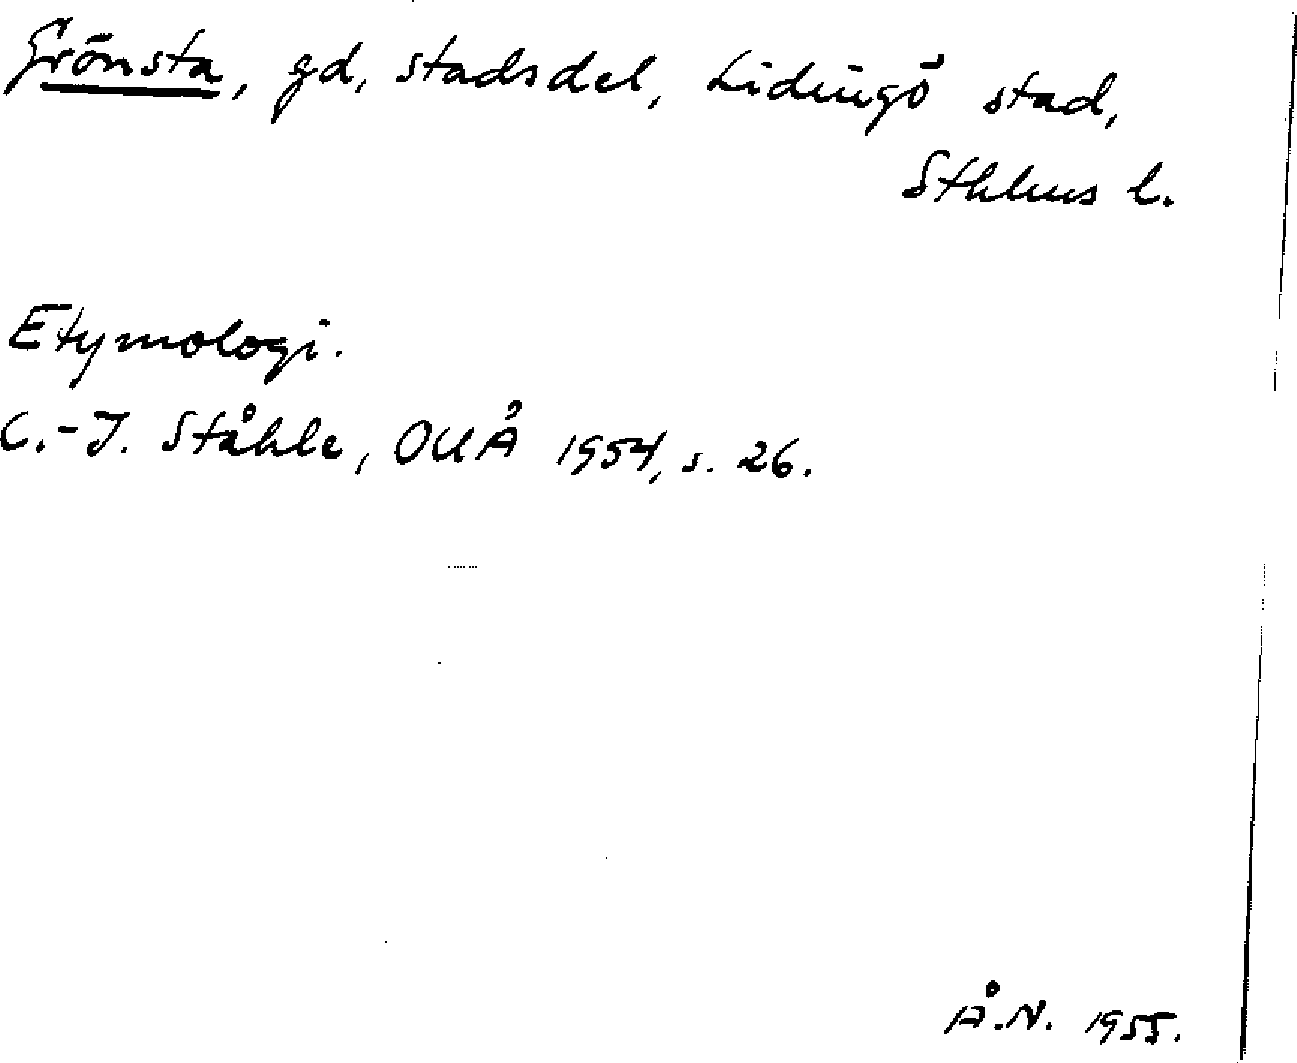 Grönsta, gd, stadsdel, Lidingö stad,
Sthlms l.
Etymologi.
C.-I. Ståhle, OUÅ 1954, s. 26.
Å.N. 1955.